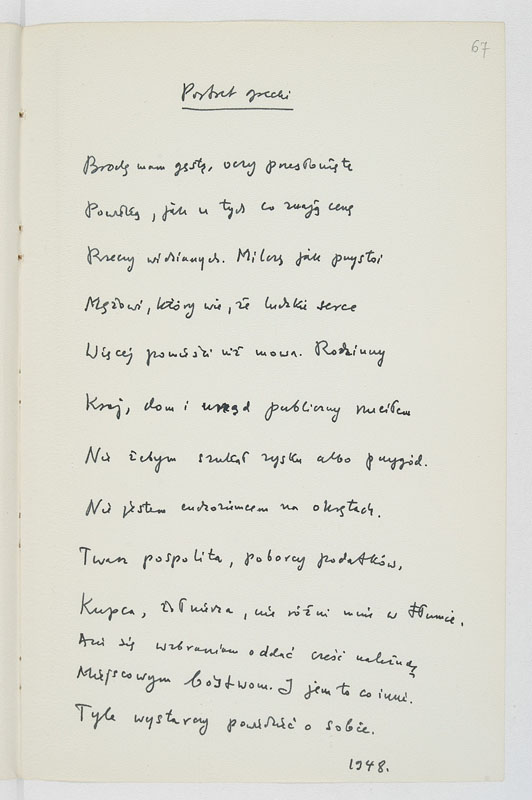 67
Portret grecki
Brodę mam gęstą, oczy przesłonięte
Powieką, jak u tych co znają cenę
Rzeczy widzianych. Milczę jak przystoi
Mężowi, który wie, że ludzkie serce
Więcej pomieści niż mowa. Rodzinny
Kraj, dom i urząd publiczny rzuciłem
Nie żebym szukał zysku albo przygód.
Nie jestem cudzoziemcem na okrętach.
Twarz pospolita, poborcy podatków,
Kupca, żołnierza, nie różni mnie w tłumie.
Ani się wzbraniam oddać cześć należną
Miejscowym bóstwom. I jem to co inni.
Tyle wystarczy powiedzieć o sobie.
1948.